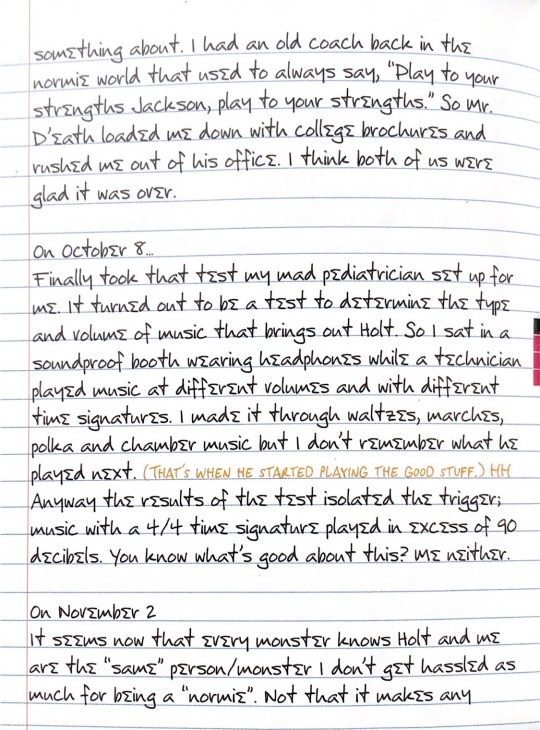 something about. I had an old coach back in the
normie world that used to always say, "Play to your
strengths Jackson, play to your strengths." So Mr.
D'eath loaded me down with college brochures and
rushed me out of his office. I think both of us were
glad it was over.
On October 8...
Finally took that test my mad pediatrician set up for
me. It turned out to be a test to determine the type
and volume of music that brings out Holt. So I sat in a
soundproof booth wearing headphones while a technician
played music at different volumes and with different
time signatures. I made it through waltzes, marches,
polka and chamber music but I don't remember what he
played next. (THAT'S WHEN HE STARTED PLAYING THE GOOD STUFF.) HH
Anyway the results of the test isolated the trigger;
music with a 4/4 time signature played in excess of 90
decibels. You know what's good about this? Me neither.
On November 2
It seems now that every monster knows Holt and me
are the "same" person/monster I don't get hassled as
much for being a "normie". Not that it makes any